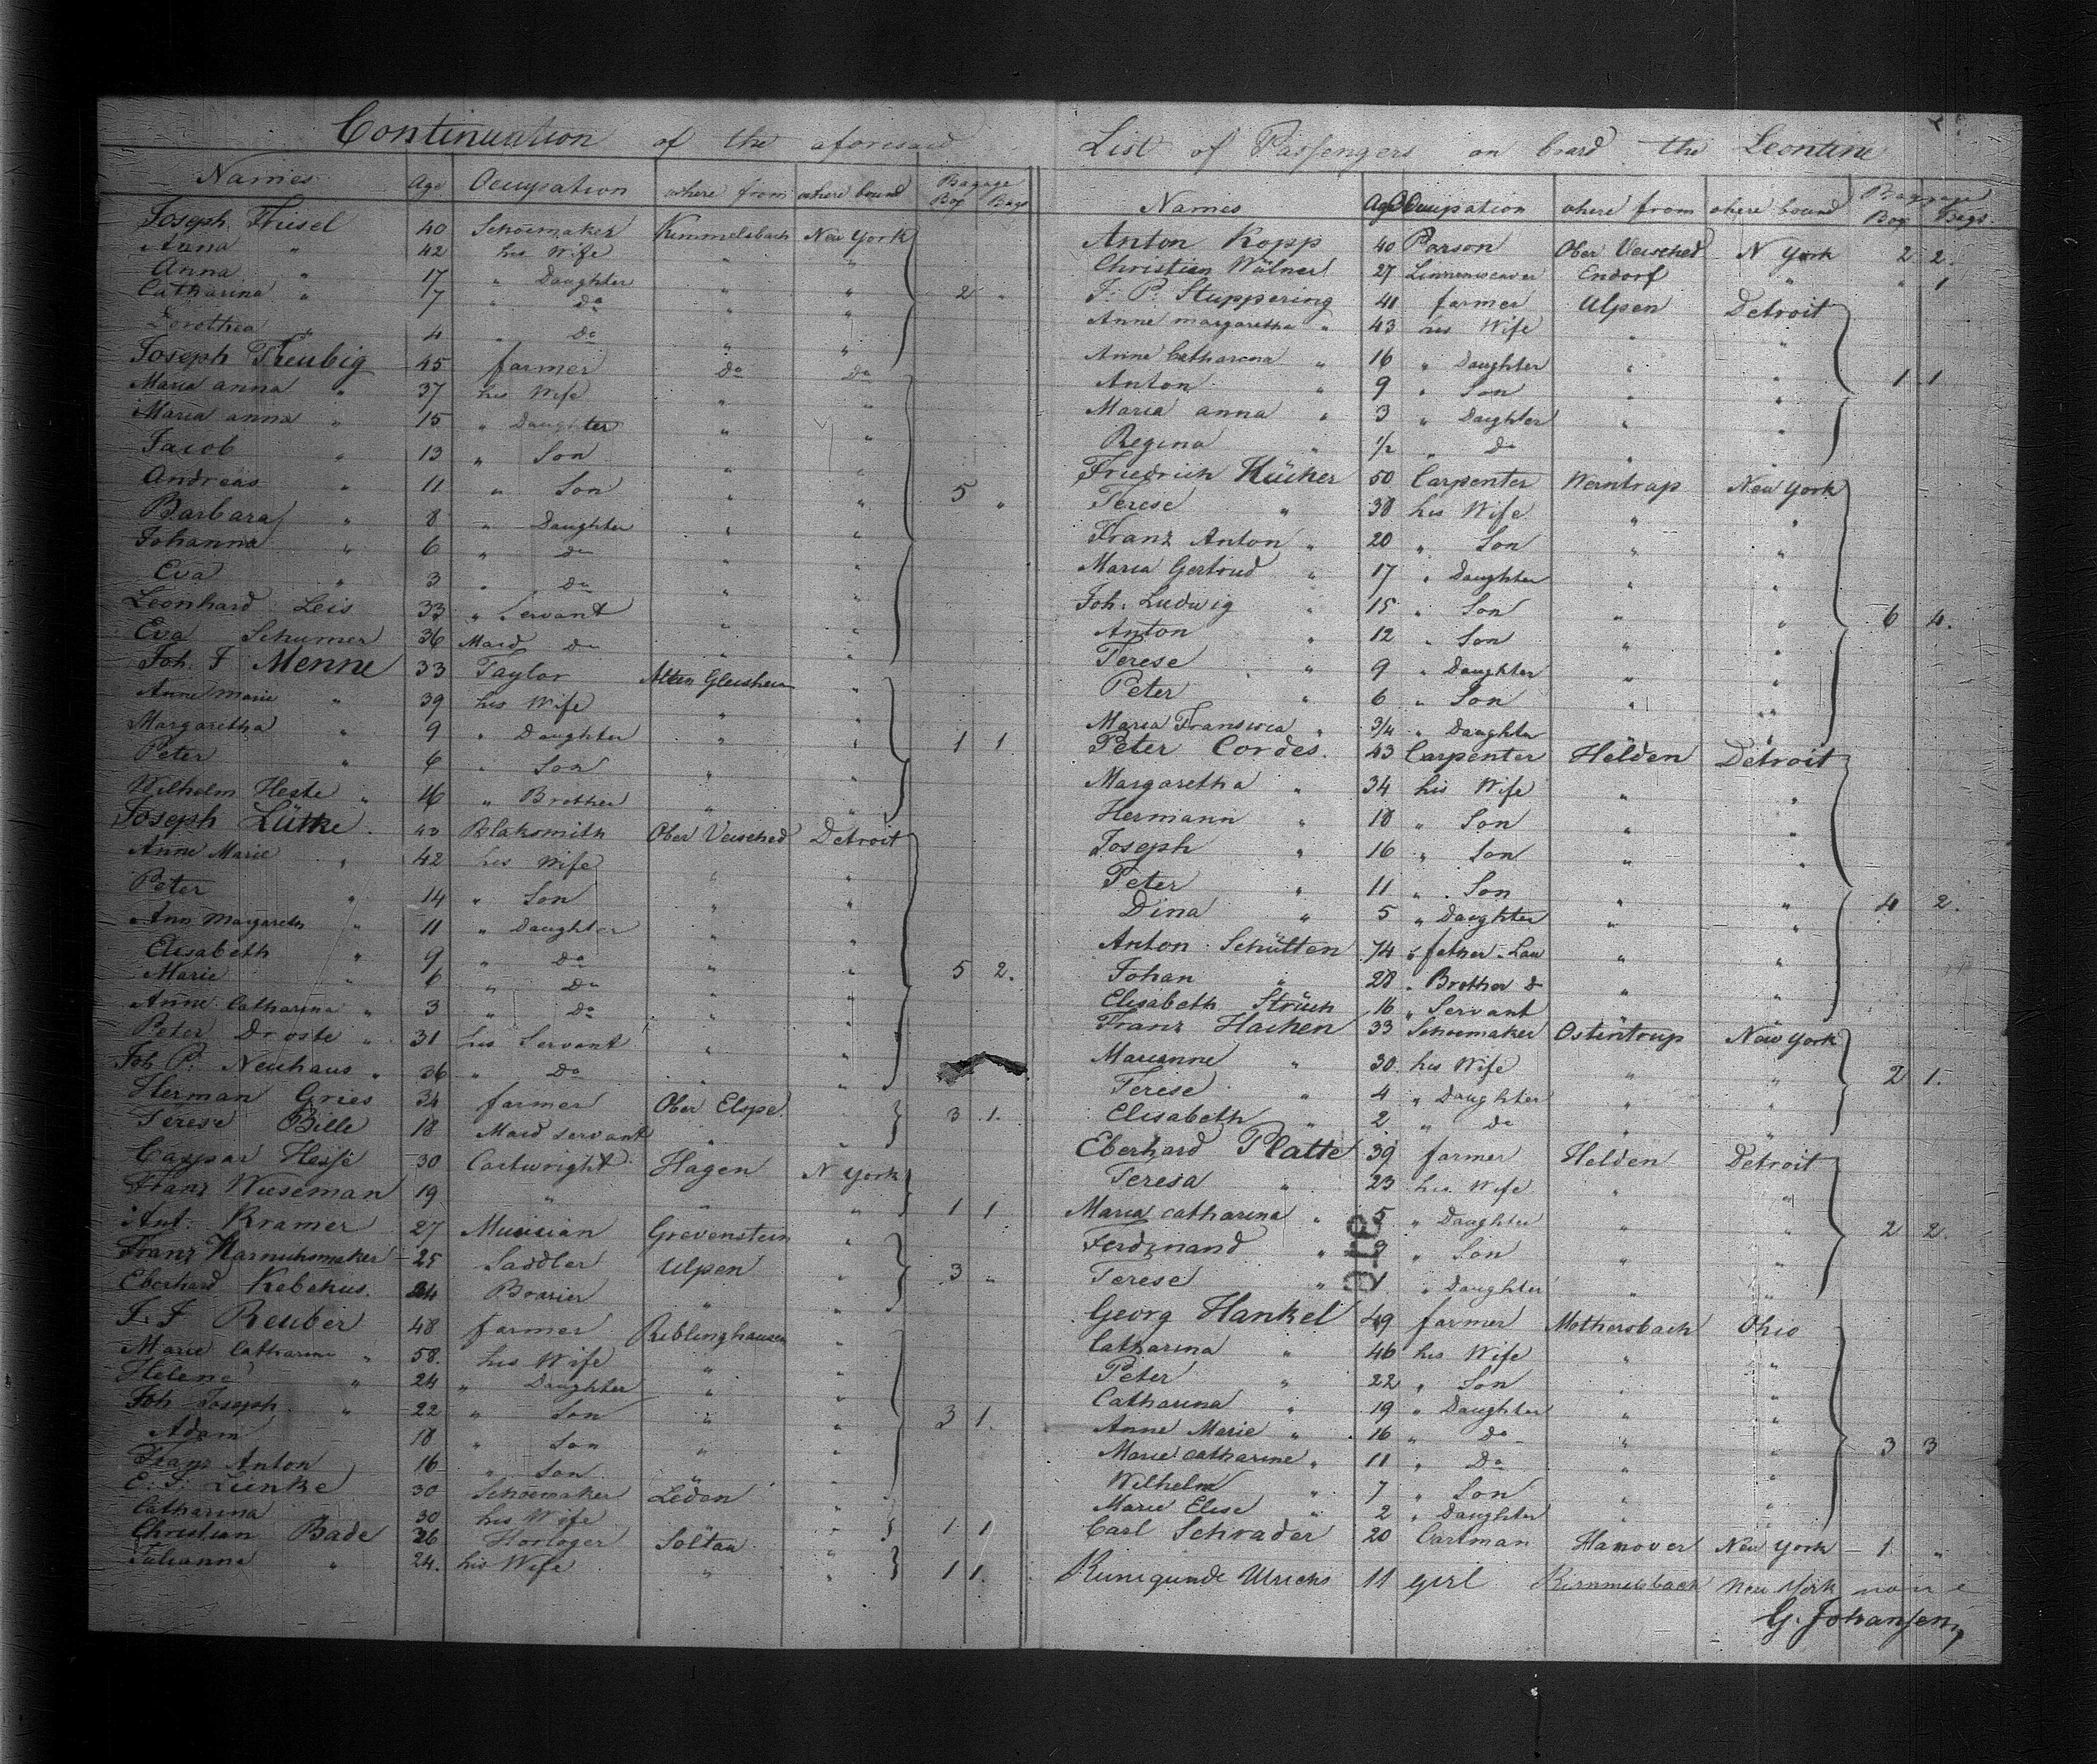 Continuation of the aforesaid List of Passengers on board the Leontine
Names Age Ocupation where from where bound Bagage
Box Bags
Joseph Thiesel 40 Schoemaker Kimmelsbach New York
Anna " 42 his Wife " "
Anna " 17 " Daughter " "
Catharina " 7 " Do " " 2 "
Dorothea " 4 " Do " "
Joseph Theubig 45 farmer Do Do
Maria anna " 37 his Wife " "
Maria anna " 15 " Daughter " "
Jacob " 13 " Son " "
Andreas " 11 " Son " " 5 "
Barbara " 8 " Daughter " "
Johanna " 6 " do " "
Eva " 3 " Do " "
Leonhard Leis 33 " Servant " "
Eva Schumer 36 Maid Do " "
Joh. F Menne 33 Taylor "
Anne Marie " 39 his Wife " "
Margaretha " 9 " Daughter " " 1 1
Peter " 6 " Son " "
Wilhelm Heste " 16 " Brother " "
Joseph Lütke 43 Blaksmith Ober Veisched Detroit
Anne Marie " 42 his Wife " "
Peter " 14 " Son " "
Ann Margareth " 11 " Daughter " "
Elisabeth " 9 " Do " "
Marie " 6 " Do " " 5 2.
Anne Catharina " 3 " Do " "
Peter Droste " 31 his Servant " "
Joh P. Neuhaus " 36 " Do " "
Herman Gries 34 farmer Ober Elspe " 3 1.
Terese Bille 18 Maid servant " "
Caspar Hesse 30 Cartwright Hagen N York
Franz Wieseman 19 " " " 1 1
Ant. Kramer 27 Musician Grevenstein "
Franz Harnischmaker 25 Saddler Ulpen " 3 "
Eberhard Kebekus. 24 " "
F. F Reuber 48 farmer Riblinghausen "
Marie Catharine " 58. his Wife " "
Helene " 24 " Daughter " "
Joh Joseph " 22 " Son " " 3 1.
Adam 18 " Son " "
Franz Anton 16 " Son "
E. F. Lienke 30 Schoemaker Leden "
Catharina 30 his Wife " " 1 1
Christian Bade 26 Horloger Soltau "
Julianna " 24. his Wife " " 1 1.
Names Age Ocupation where from where bound Baggage
Box Bags.
Anton Kopp 40 Parson Ober Veisched N York 2 2.
Christian Wülner 27 Linnenweaver Endorf " " 1
F. P. Stuppering 41 farmer Ulpen Detroit
Anne margaretha " 43 his Wife " "
Anne Catharina " 16 " Daughter " "
Anton " 9 " Son " " 1 1
Maria anna " 3 " Daughter " "
Regina " 1/2 " Do " "
Friedrich Hücker 50 Carpenter Werntrap New York
Terese " 38 his Wife " "
Franz Anton " 20 " Son " "
Maria Gertrud " 17 " Daughter " "
Joh. Ludwig " 15 " Son " " 6 4.
Anton " 12 " Son " "
Terese " 9 " Daughter " "
Peter " 6 " Son " "
Maria Fransisca " 3/4 " Daughter
Peter Cordes. 43 Carpenter Helden Detroit
Margaretha " 34 his Wife " "
Hermann " 18 " Son " "
Joseph " 16 " Son " "
Peter " 11 " Son " "
Dina " 5 " Daughter " " 4 2.
Anton Schütten 74 " father-Law " "
Johan " 28 " Brother do " "
Elisabeth Strück 16 " Servant
Franz Hachen 33 Schoemaker Ostentrup New York
Marianne " 30. his Wife " " 2 1.
Terese " 4 " Daughter " "
Elisabeth " 2 " do " "
Eberhard Platte 39 farmer Helden Detroit
Teresa " 23 his Wife " "
Maria catharina " 5 " Daughter " " 2 2.
Ferdinand " 3 " Son " "
Terese " 1 " Daughter " "
Georg Hankel 49 farmer Mothersbach Ohio
Catharina " 46 his Wife " "
Peter " 22 " Son " "
Catharina " 19 " Daughter " "
Anne Marie " 16 " Do " "
Marie catharine " 11 " Do " " 3 3
Wilhelm " 7 " Son " "
Marie Elise " 2 " Daughter
Carl Schrader 20 Cartman Hanover New York 1 "
Kunigunde Ulrichs 11 girl Kimmelsbach New York none
G. Johansen